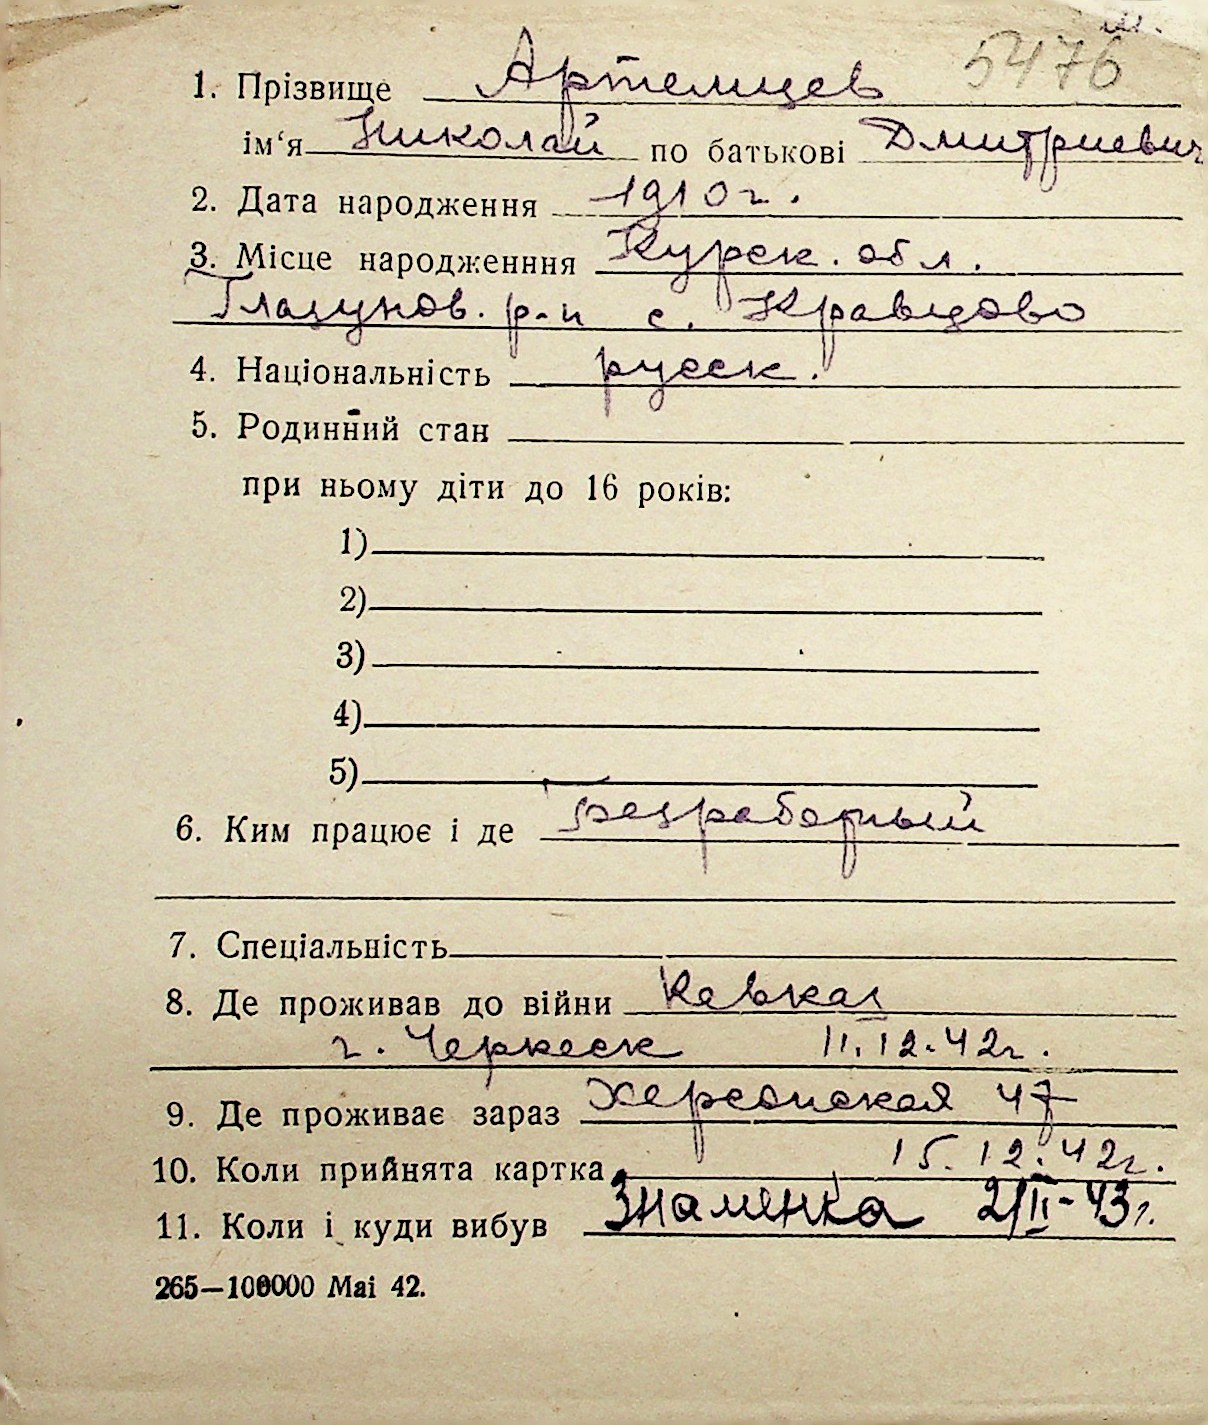 5476
1. Прізвище Артемцев
ім‘я Николай по батькові Дмитриевич
2. Дата народження 1910 г.
3. Місце народженння Курск. обл.
Глазунов. р-н с. Кравцово
4. Національність русск.
5. Родинний стан
при ньому діти до 16 років:
1)
2)
3)
4)
5)
6. Ким працює і де безработный
7. Спеціальність
8. Де проживав до війни Кавказ
г. Черкеск 11.12.42г.
9. Де проживає зараз Херсонская 47
10. Коли прийнята картка 15.12.42г.
11. Коли і куди вибув Знаменка 2/II-43г.
265—100000 Mai 42.